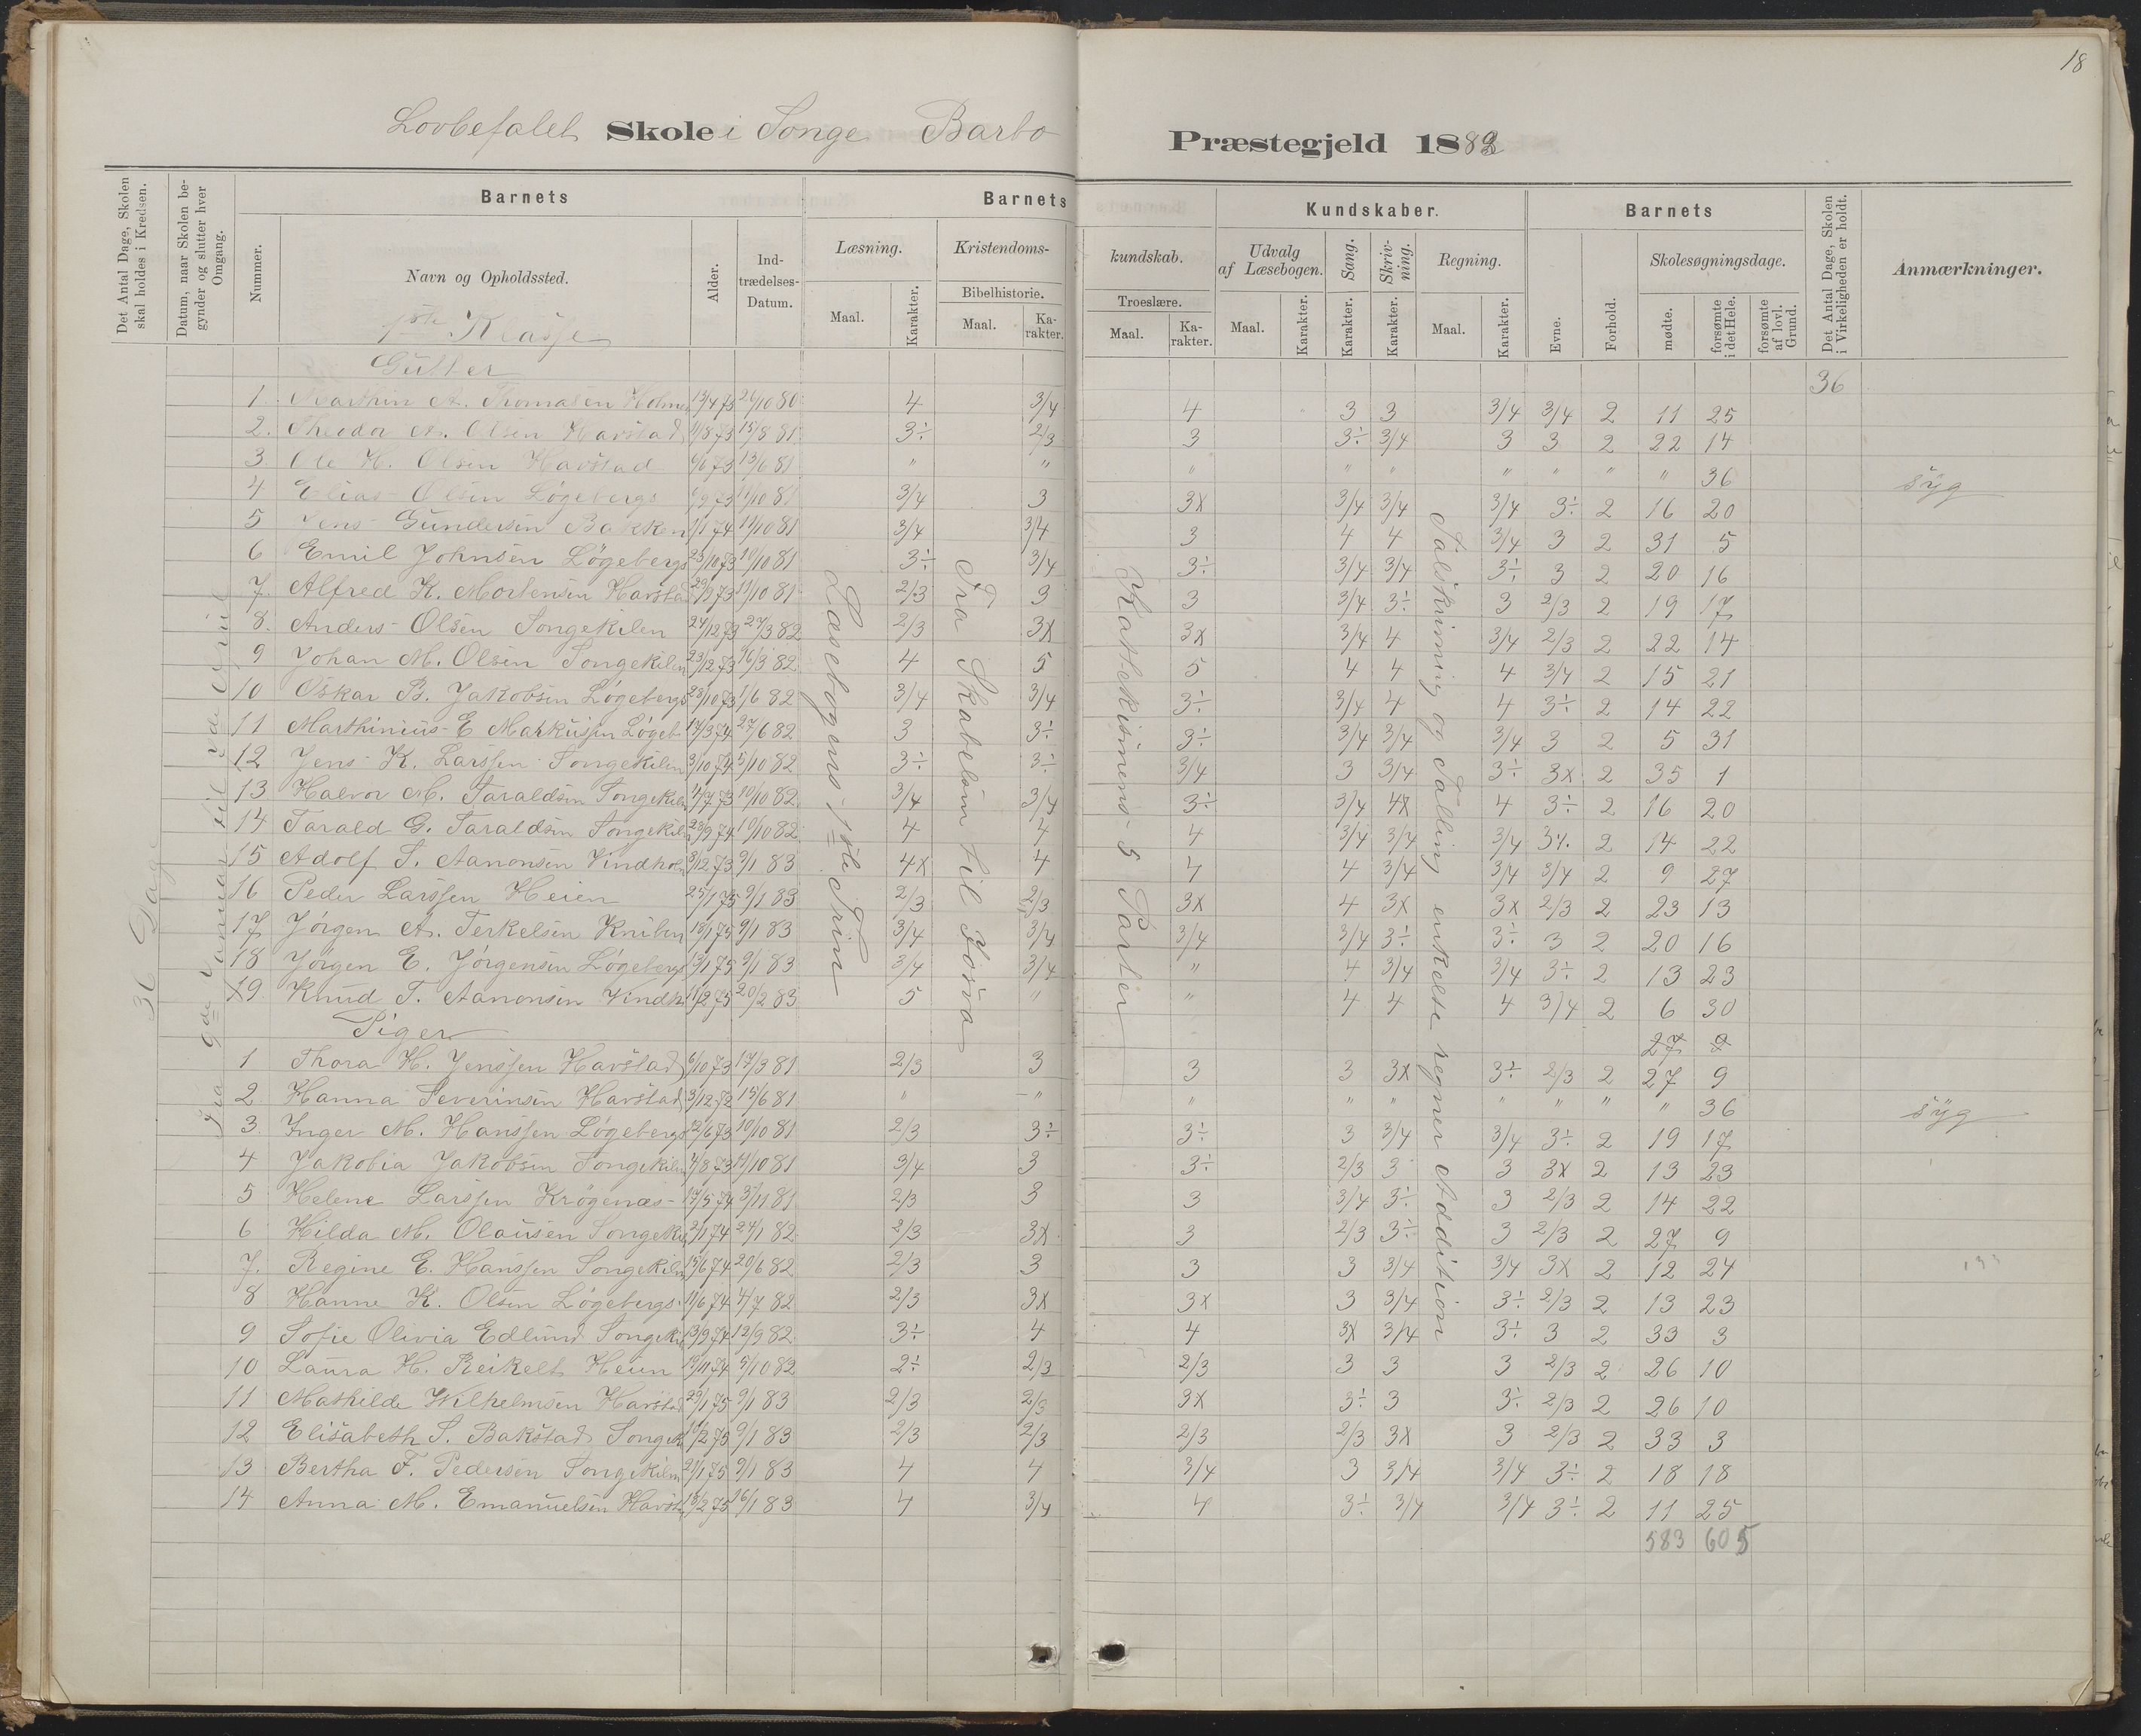 18
Lovbefalet Skole i Songe Barbo Præstegjeld 1883
Det Antal Dage, Skolen skal holdes i Kredsen.
Datum, naar Skolen begynder og slutter hver Omgang.
Barnets
Nummer.
Navn og Opholdssted.
Alder.
Indtrædelses-Datum.
Barnets
Læsning.
Maal.
Karakter.
Kristendoms-
Bibelhistorie.
Maal.
Karakter.
kundskab.
Troeslære.
Maal.
Karakter.
Kundskaber.
Udvalg af Læsebogen.
Maal.
Karakter.
Sang.
Karakter.
Skrivning.
Karakter.
Regning.
Maal.
Karakter.
Barnets
Evne.
Forhold.
Skolesøgningsdage.
mødte.
forsømte i det Hele.
forsømte af lovl. Grund.
Det Antal Dage, Skolen i Virkeligheden er holdt.
Anmærkninger.
1ste Klasse
Gutter
36
36 Dage
Læsebogens 1ste Trin
Fra Skabelsen til Josva
Katekismens 5 Parter
Talskrivning og Talling enkelte regner Addition
1. A. Thomasen 4 3/4 4 3 3 3/4 3/4 2 11 25
2. Theodor A. Olsen Havstad 11/8 73 15/8 81 3÷ 2/3 3 3÷ 3/4 3 3 2 22 14
3. Ole H. Olsen Havstad 6/6 73 13/6 81 " " " " " " " " " 36 syg
4 Elias Olsen Løgebergs 11/10 81 3/4 3 3x 3/4 3/4 3/4 3÷ 2 16 20
5 Jens Gundersen Bakken 1/1 74 11/10 81 3/4 3/4 3 4 4 3/4 3 2 31 5
6 Emil Johnsen Løgebergs 23/10 73 10/10 81 3÷ 3/4 3÷ 3/4 3/4 3÷ 3 2 20 16
7. Alfred K. Mortensen Havstad 29/9 73 11/10 81 2/3 3 3 3/4 3÷ 3 2/3 2 19 17
8. Anders Olsen Songekilen 24/12 73 27/3 82 2/3 3x 3x 3/4 4 3/4 2/3 2 22 14
9 Johan M. Olsen Songekilen 23/12 73 16/3 82 4 5 5 4 4 4 3/4 2 15 21
10 Oskar B. Jakobsen Løgebergs 23/10 73 1/6 82 3/4 3/4 3÷ 3/4 4 4 3÷ 2 14 22
11 Marthinius E Markussen Løgeb. 17/3 74 27/6 82 3 3÷ 3÷ 3/4 3/4 3/4 3 2 5 31
12 Jens K. Larssen Songekilen 3/10 74 5/10 82 3÷ 3÷ 3/4 3 3/4 3÷ 3x 2 35 1
13 Halvor M. Taraldsen Songekilen 11/7 73 10/10 82 3/4 3/4 3÷ 3/4 4x 4 3÷ 2 16 20
14 Tarald G. Taraldsen Songekil 23/9 74 10/10 82 4 4 4 3/4 3/4 3/4 2 14 22
15 Adolf S. Aanonsen Vindhol 3/12 73 9/1 83 4x 4 4 4 3/4 3/4 3/4 2 9 27
16 Peder Larssen Heien 25/1 75 9/1 83 2/3 2/3 3x 4 3x 3x 2/3 2 23 13
17. Jørgen A. Terkelsen 18/1 75 9/1 83 3/4 3/4 3/4 3/4 3÷ 3÷ 3 2 20 16
18 Jørgen E. Jørgensen Løgebergs 13/1 75 9/1 83 3/4 3/4 " 4 3/4 3/4 3÷ 2 13 23
19. Knud T. Aanonsen Vindh 11/2 75 20/2 83 5 " " 4 4 4 3/4 2 6 30
Piger
27 9
1 Thora H. Jenssen Havstad 6/10 73 17/3 81 2/3 3 3 3 3x 3÷ 2/3 2 27 9
2 Hanna Severinsen Havstad 3/12 72 15/6 81 " " " " " " " " " 36 syg
3 Inger M. Hanssen Løgebergs 12/6 73 10/10 81 2/3 3÷ 3÷ 3 3/4 3/4 3÷ 2 19 17
4 Jakobia Jakobsen Songekilen 4/8 73 11/10 81 3/4 3 3÷ 2/3 3 3 3x 2 13 23
5 Helene Larssen Krøgenæs 17/5 74 3/11 81 2/3 3 3 3/4 3÷ 3 2/3 2 14 22
6 Hilda M. Olausen Songekil 2/1 74 24/1 82 2/3 3x 3 2/3 3÷ 3 2/3 2 27 9
7. Regine E. Hanssen Songekilen 15/6 74 20/6 82 2/3 3 3 3 3/4 3/4 3x 2 12 24
8 Hanne K. Olsen Løgebergs 11/6 74 4/7 82 2/3 3x 3x 3 3/4 3÷ 2/3 2 13 23
9 Sofie Olivia Edlund Songekil 13/9 74 12/9 82 3÷ 4 4 3x 3/4 3÷ 3 2 33 3
10 Laura H. Reikelt Heien 19/11 74 5/10 82 2÷ 2/3 2/3 3 3 3 2/3 2 26 10
11 Mathilde Wilhelmsen Havstad 29/1 75 9/1 83 2/3 2/3 3x 3÷ 3 3÷ 2/3 2 26 10
12 Elisabeth S. Bakstad Songek 10/2 75 9/1 83 2/3 2/3 2/3 2/3 3x 3 2/3 2 33 3
13 Bertha F. Pedersen Songekilen 21/1 75 9/1 83 4 4 3/4 3 3/4 3/4 3÷ 2 18 18
14 Anna M. Emanuelsen Havst 15/2 75 16/1 83 4 3/4 4 3÷ 3/4 3/4 3÷ 2 11 25
583 605